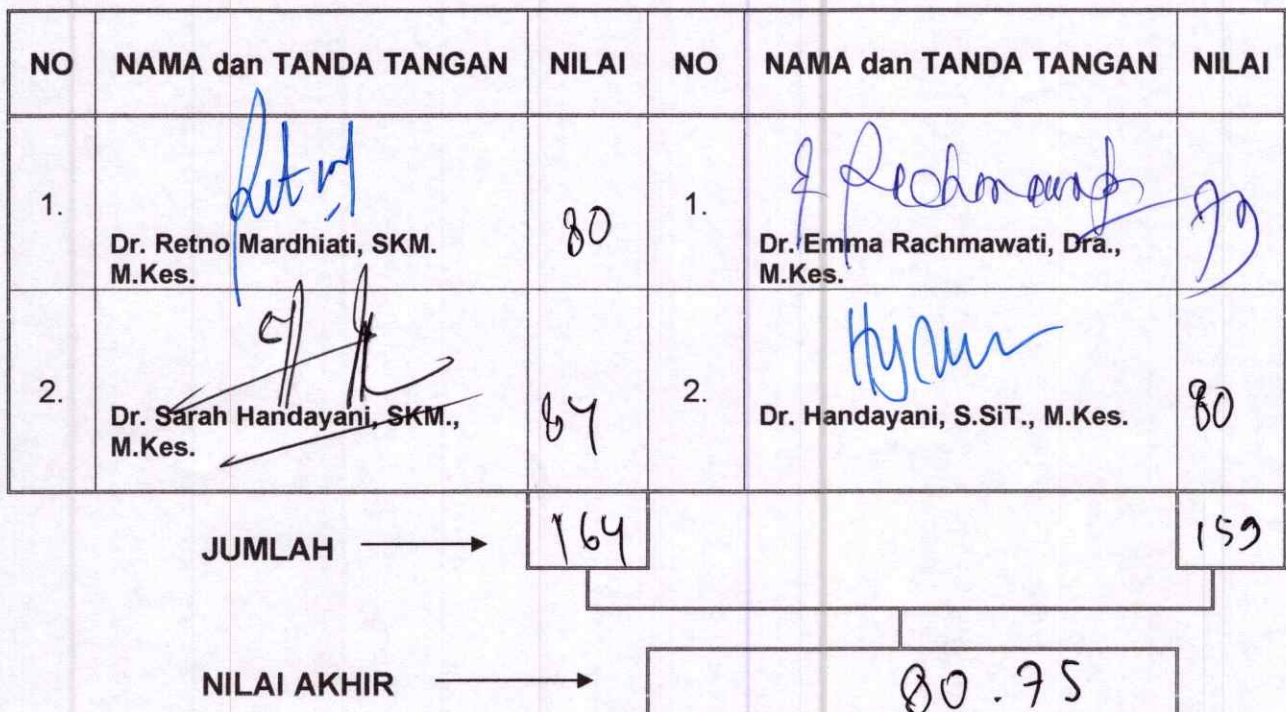 NO NAMA dan TANDA TANGAN NILAI NO NAMA dan TANDA TANGAN NILAI
1.
Dr. Retno Mardhiati, SKM.
M.Kes.
80
1.
Dr. Emma Rachmawati, Dra.,
M.Kes.
79
2.
Dr. Sarah Handayani, SKM.,
M.Kes.
84
2.
Dr. Handayani, S.SiT., M.Kes.
80
JUMLAH 164 159
NILAI AKHIR 80.75